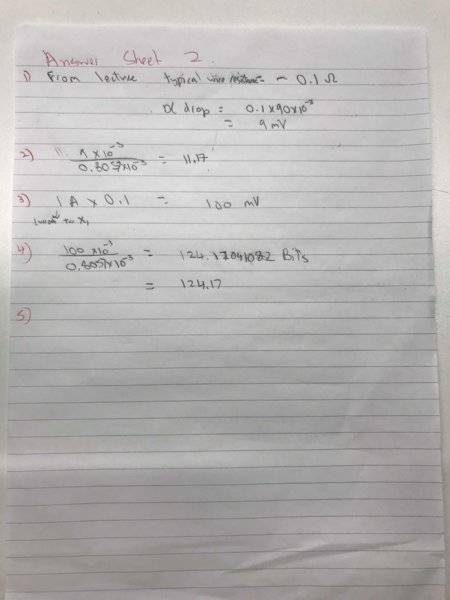 Answer Sheet 2.
1) From lecture typical wire resistance ~ 0.1 Ω
∝ drop = 0.1 x 90x10⁻³
= 9 mV
2) 9 x10⁻³ / 0.8057x10⁻³ = 11.17
3) 1A x 0.1 = 100 mV
4) 100 x10⁻³ / 0.8057x10⁻³ = 124.17 Bits
= 124.17
5)